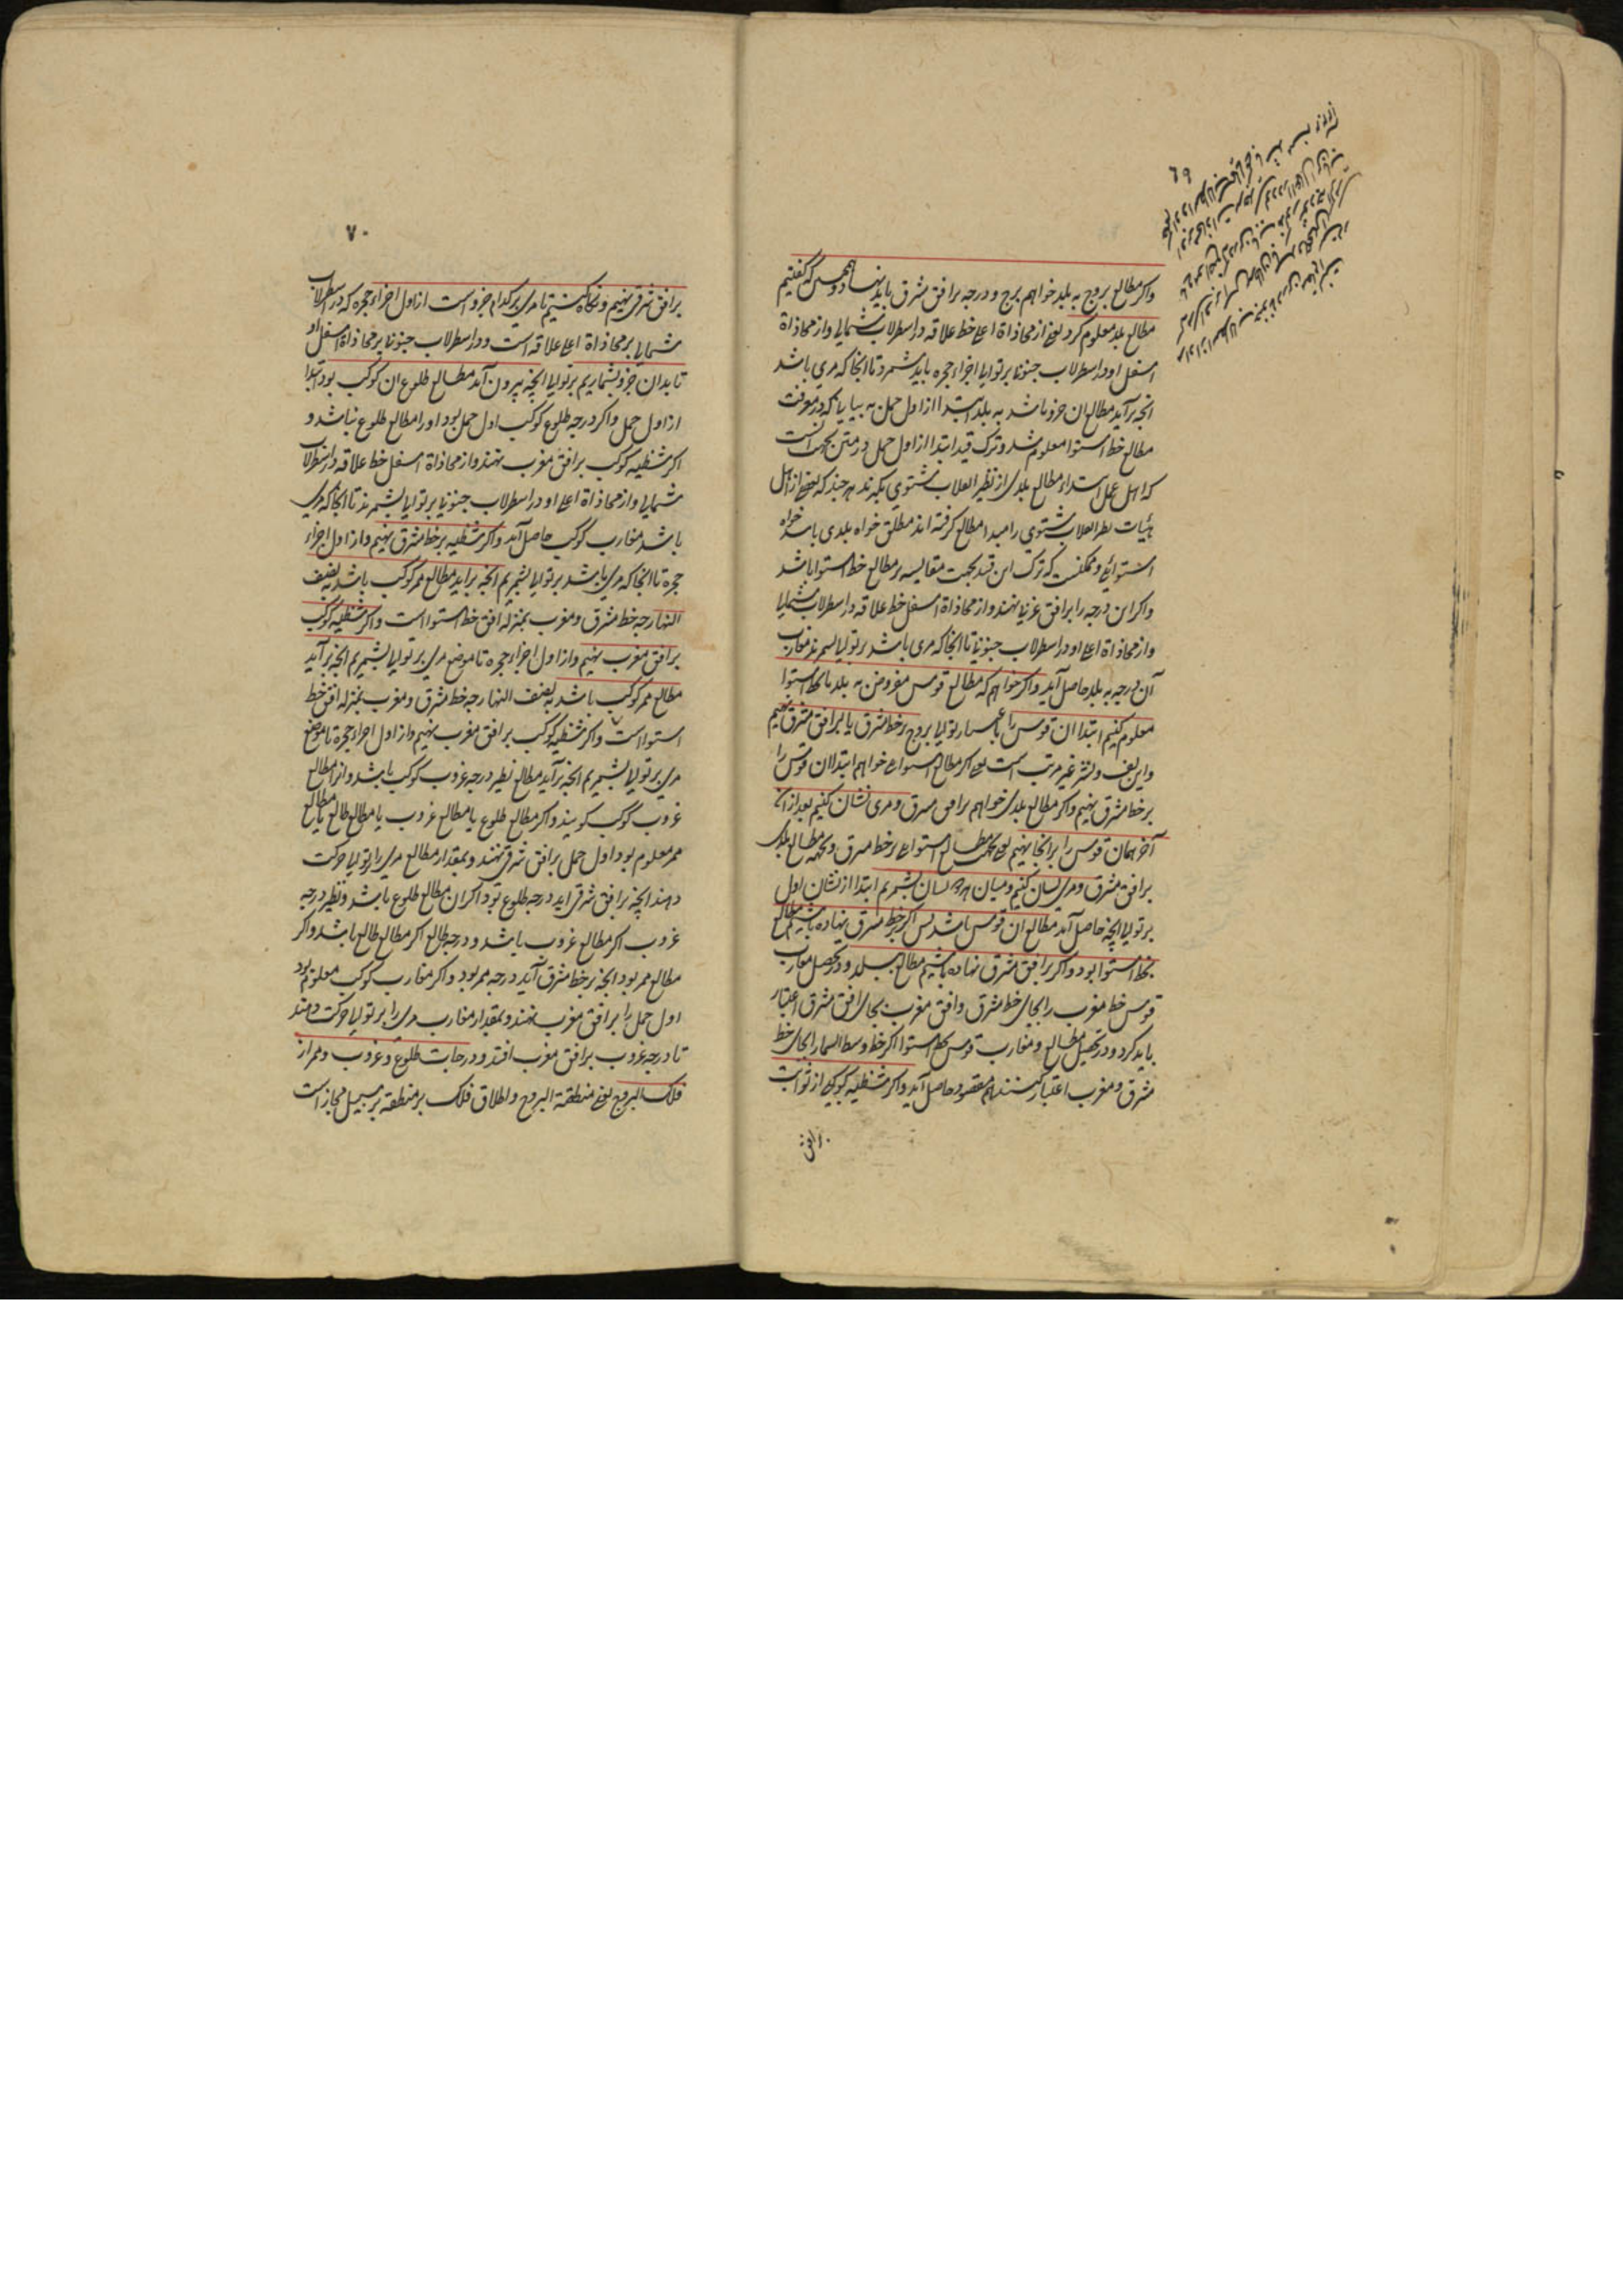 ۶۹
واکر مطالع بروج به بلد خواهم برج و درجه برافق مشرق باید نهاد و همچنین که کفتیم
مطالع بلد معلوم کرد یعنی از محاذاة اعلی خط علاقه در اسطرلاب شمالی و از محاذاة
اسفل او در اسطرلاب جنوبی بر توالی اجزاء حجره باید شمرد تا انجا که مری باشد
انچه برآید مطالع ان جزو باشد به بلد ابتدا از اول حمل به بیانی که در معرفت
مطالع خط استوا معلوم شد و ترک قید ابتدا از اول حمل در متن بجهت انست
که اهل عمل ابتداء مطالع بلدی از نظیر انقلاب شتوی نکیرند هر چند که بعضی از اهل
هیئات نظیر انقلاب شتوی را مبدا مطالع کرفته اند مطلق خواه بلدی باشد خواه
استوائی و ممکنست که ترک این قید بجهت مقایسه بر مطالع خط استوا باشد
واکر این درجه را برافق غربی نهند و از محاذاة اسفل خط علاقه در اسطرلاب شمالی
و از محاذاة اعلی او در اسطرلاب جنوبی تا انجا که مری باشد بر توالی بشمرند مغارب
آن درجه به بلد حاصل آید واکر خواهم که مطالع قوس مفروض به بلد یا بخط استوا
معلوم کنیم ابتدا ان قوس را باعتبار توالی بروج بر خط مشرق یا برافق مشرق نهیم
و این لف و نشر غیر مرتب است یعنی اکر مطالع استوائی خواهم ابتداء ان قوس را
بر خط مشرق نهیم واکر مطالع بلدی خواهم برافق مشرق و مری نشان کنیم بعد ازان
آخر همان قوس را برانجا نهیم یعنی بجهت مطالع استوائی بر خط مشرق و بجهة مطالع بلدی
برافق مشرق و مری نشان کنیم و میان هر دو نشان بشمریم ابتدا از نشان اول
بر توالی انچه حاصل آید مطالع ان قوس باشد پس اکر بر خط مشرق نهاده باشیم مطالع
بخط استوا بود واکر برافق مشرق نهاده باشیم مطالع بلد و در تحصیل مغارب
قوس خط مغرب را بجای خط مشرق و افق مغرب بجای افق مشرق اعتبار
باید کرد و در تحصیل مطالع و مغارب قوس بخط استوا اکر خط وسط السما را بجای خط
مشرق و مغرب اعتبار کنند هم مقصود حاصل آید واکر شظیه کوکبی از ثوابت
برافق
۷۰
برافق شرقی نهیم و نکاه کنیم تا مری بر کدام جزو است از اول اجزاء حجره که در اسطرلاب
شمالی بر محاذاة اعلی علاقه است و در اسطرلاب جنوبی بر محاذاة اسفل او
تا بدان جزو بشماریم بر توالی انچه بیرون آید مطالع طلوع ان کوکب بود ابتدا
از اول حمل واکر درجه طلوع کوکب اول حمل بود او را مطالع طلوع نباشد و
اکر شظیه کوکب برافق مغرب نهند و از محاذاة اسفل خط علاقه در اسطرلاب
شمالی و از محاذاة اعلی او در اسطرلاب جنوبی بر توالی بشمرند تا انجا که مری
باشد مغارب کوکب حاصل آید واکر شظیه بر خط مشرق نهیم و از اول اجزاء
حجره تا انجا که مری باشد بر توالی بشمریم انچه براید مطالع ممر کوکب باشد به نصف
النهار چه خط مشرق و مغرب بمنزله افق خط استوا است واکر شظیه کوکب
برافق مغرب نهیم و از اول اجزاء حجره تا موضع مری بر توالی بشمریم انچه برآید
مطالع ممر کوکب باشد به نصف النهار چه خط مشرق و مغرب بمنزله افق خط
استوا است واکر شظیه کوکب برافق مغرب نهیم و از اول اجزاء حجره تا موضع
مری بر توالی بشمریم انچه برآید مطالع نظیر درجه غروب کوکب باشد و انرا مطالع
غروب کوکب کویند واکر مطالع طلوع یا مطالع غروب یا مطالع طالع یا مطالع
ممر معلوم بود اول حمل برافق شرقی نهند و بمقدار مطالع مری را بر توالی حرکت
دهند انچه برافق شرقی اید درجه طلوع بود اکر ان مطالع طلوع باشد و نظیر درجه
غروب اکر مطالع غروب باشد و درجه طالع اکر مطالع طالع باشد واکر
مطالع ممر بود انچه بر خط مشرق آید درجه ممر بود واکر مغارب کوکب معلوم بود
اول حمل را برافق مغرب نهند و بمقدار مغارب مری را بر توالی حرکت دهند
تا درجه غروب برافق مغرب افتد و درجات طلوع و غروب و ممر از
فلک البروج یعنی منطقة البروج و اطلاق فلک بر منطقه بر سبیل مجاز است